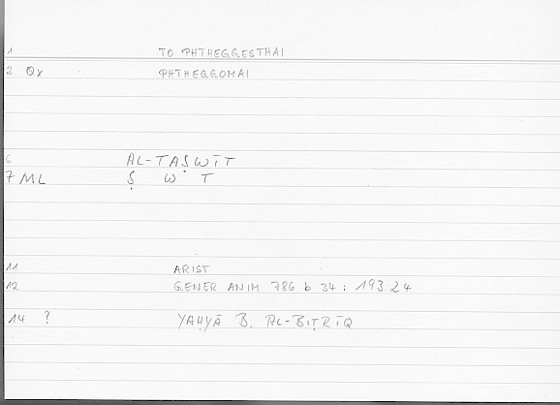 1 TO PHTHEGGESTHAI
2 Qy PHTHEGGOMAI
6 AL-TAṢWĪT
7 ML Ṣ W T
11 ARIST
12 GENER ANIM 786 b 34 : 193.24
14 ? YAḤYĀ B. AL-BIṬRĪQ